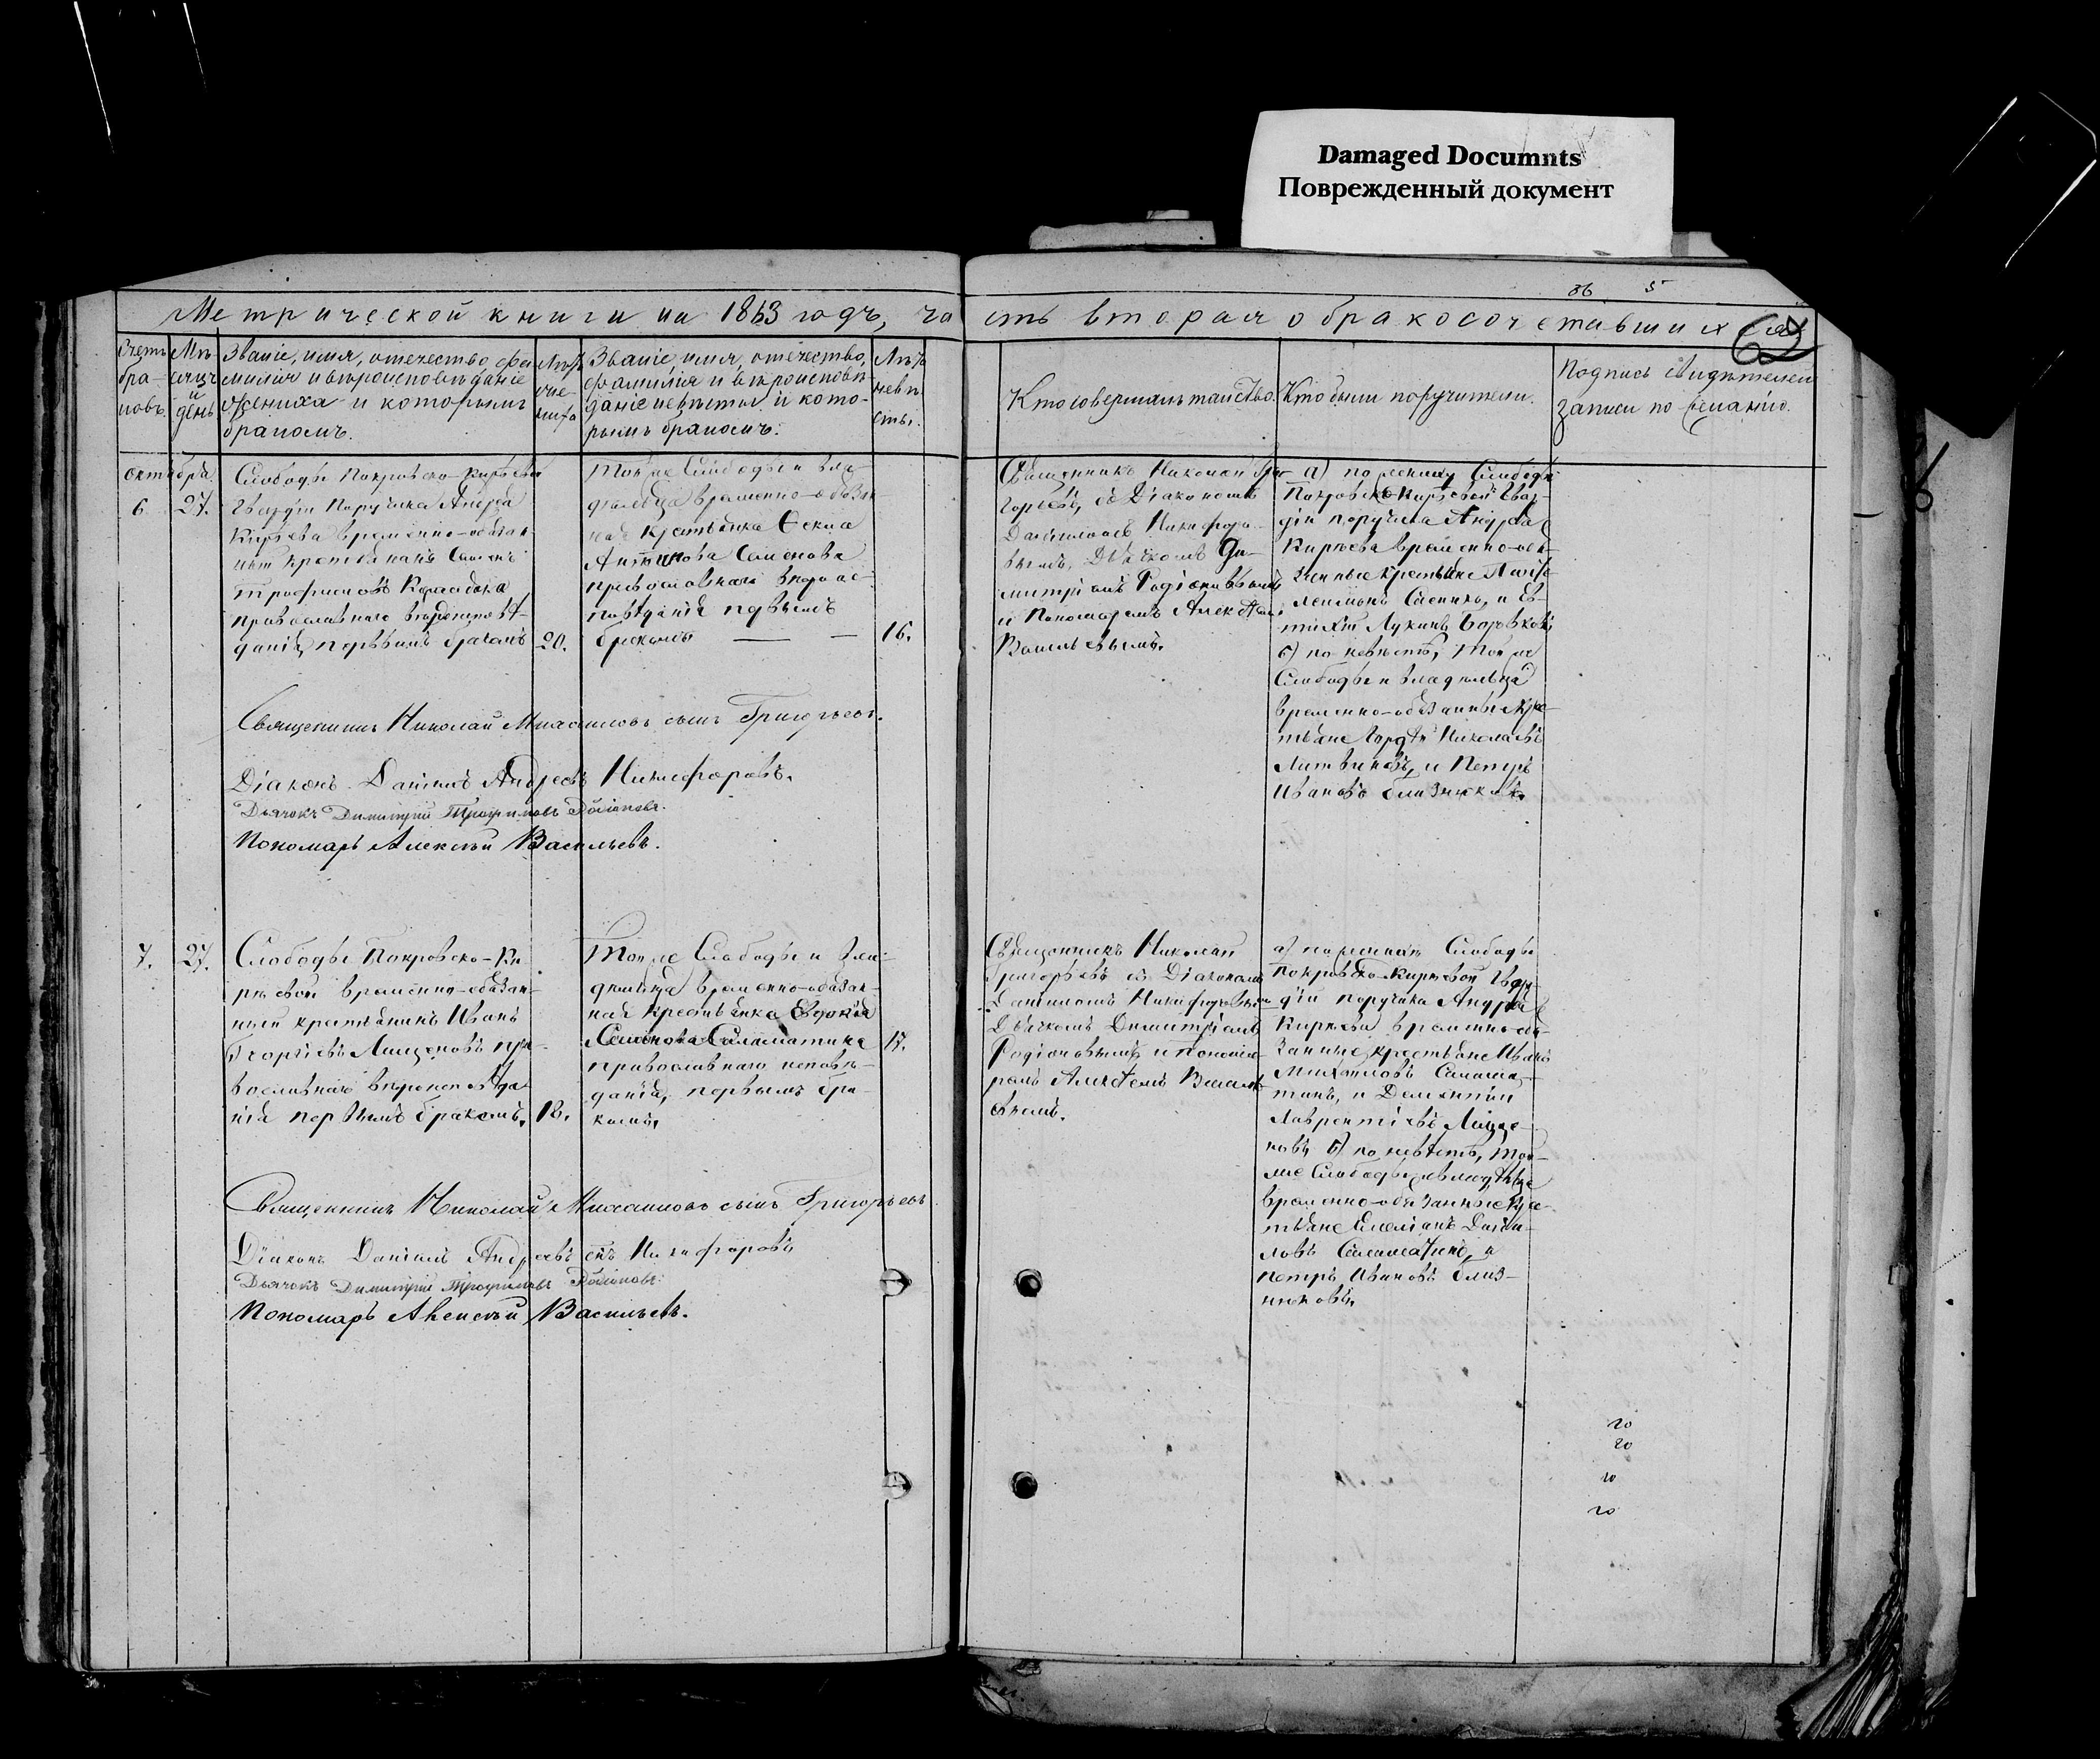 Damaged Documnts
Поврежденный документ
86 5
Метрической книги на 1863 годъ, часть вторая о бракосочетавшихся
62
Счетъ браковъ.
Мѣсяцъ и день
Званіе, имя, отечество, фамилія и вѣроисповѣданіе
жениха и которымъ
бракомъ.
Лѣта жениха
Званіе, имя, отечество,
фамилія и вѣроисповѣ-
даніе невѣсты и кото-
рымъ бракомъ.
Лѣта невѣсты.
Кто совершалъ таинство.
Кто были поручители.
Подпись свидѣтелей
записи по желанію.
октября
6
27.
Слободы Покровско-Кирѣевой
Гвардіи Поручика Андрея
Кирѣева временно-обязан
ный крестьянинъ Семенъ
Трофимовъ
православнаго вѣроисповѣ-
данія, первымъ бракомъ
20.
Той же Слободы и вла
дѣльца временно-обязан
ная крестьянка Ѳекла
Антипова Семенова
православнаго вѣроис-
повѣданія первымъ
бракомъ — —
16.
Священникъ Николай Гри
горьевъ, съ Діакономъ
Даніиломъ Никифоро-
вымъ, Дьячкомъ Ди-
митріемъ Родіоновымъ
и Пономаремъ Алексѣем.
Васильевымъ.
а) по жениху Слободы
Покровско-Кирѣевой Гвар-
діи поручика Андрея
Кирѣева временно-обя-
занные крестьяне
и Ев-
тихій Лукинъ Боровковъ
б) по невѣстѣ, той же
Слободы и владѣльца
временно-обязанные кре-
стьяне Гордѣй Николаевъ
Литвиновъ, и Петръ
Ивановъ Близнюковъ.
Священникъ Николай Михаиловъ сынъ Григорьевъ.
Діаконъ Даніилъ Андреевъ Никифоровъ.
Дьячокъ Димитрій Трофимовъ Родіоновъ.
Пономарь Алексѣй Васильевъ.
7.
27.
Слободы Покровско-Ки
рѣевой временно-обязан-
ный крестьянинъ Иванъ
Георгіевъ Лищеновъ пра-
вославнаго вѣроисповѣда-
нія первымъ бракомъ.
18.
Той же Слободы и вла-
дѣльца временно-обязан-
ная крестьянка Евдокія
Семенова Саламатина
православнаго исповѣ-
данія, первымъ бра-
комъ.
17.
Священникъ Николай
Григорьевъ съ Діакономъ
Даніиломъ Никифоровым
Дьячкомъ Димитріемъ
Родіоновымъ и понома-
ремъ Алексѣемъ Василь-
евымъ.
а) по женихѣ Слободы
Покровско-Кирѣевой Гвар-
діи поручика Андрея
Кирѣева временно-обя-
занные крестьяне Иванъ
Михаиловъ Салама-
тинъ, и Дементій
Лаврентіевъ Лище-
новъ б) по невѣстѣ, той-
же Слободы и владѣльца
временно-обязанные кре-
стьяне Емеліанъ Дани-
ловъ Саламатинъ, и
Петръ Ивановъ Близ-
нюковъ.
Священникъ Николай Михаиловъ сынъ Григорьевъ
Діаконъ Даніилъ Андреевъ снъ Никифоровъ
Дьячокъ Димитрій Трофимовъ Родіоновъ.
Пономарь Алексѣй Васильевъ.
20
20
20
20